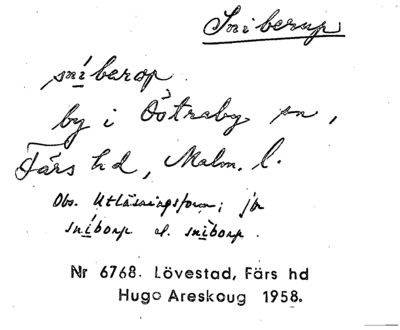 Sniberup
sníberop.
by i Östraby sn,
Färs hd, Malm. l.
Obs. Utläsningsform; jfr
snìborp el. snìborp.
Nr 6768. Lövestad, Färs hd
Hugo Areskoug 1958.